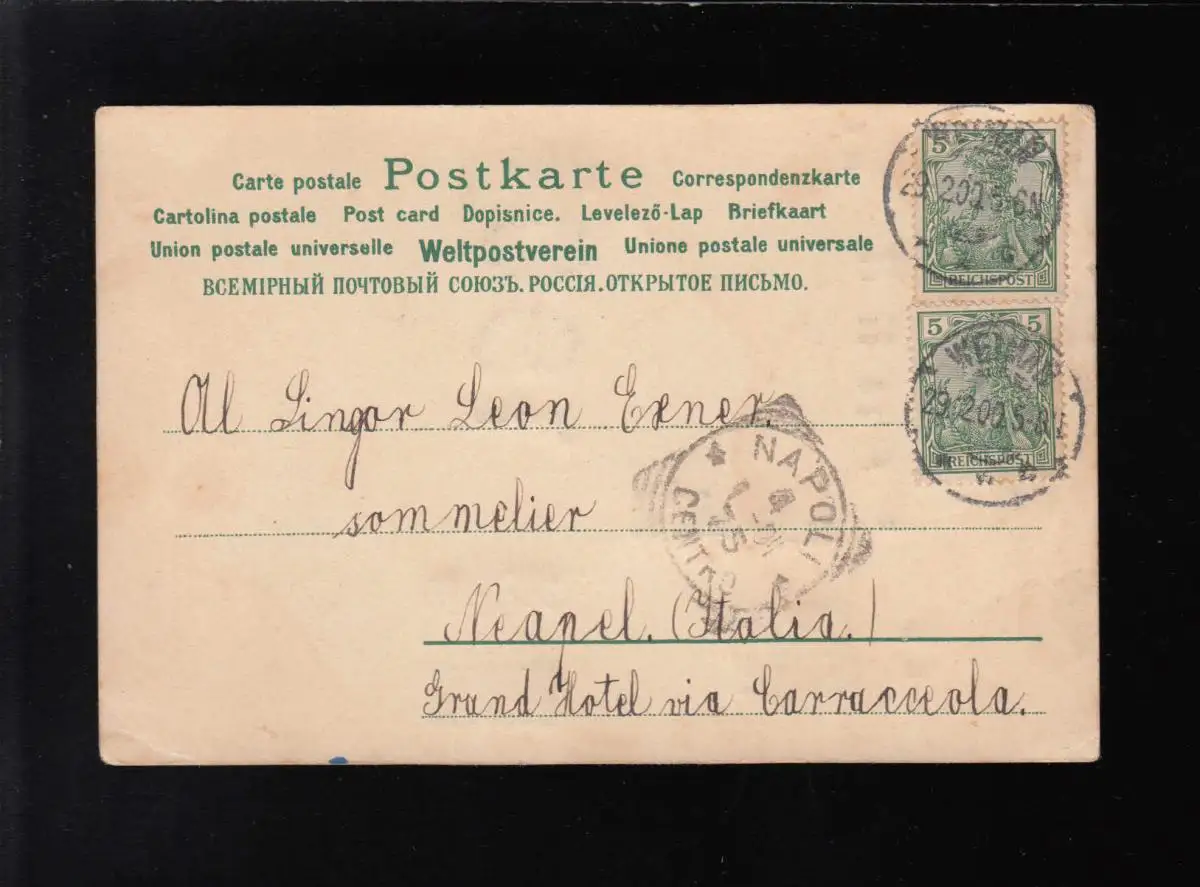 Carte postale Postkarte Correspondenzkarte
Cartolina postale Post card Dopisnice. Levelező-Lap Briefkaart
Union postale universelle Weltpostverein Unione postale universale
ВСЕМІРНЫЙ ПОЧТОВЫЙ СОЮЗЪ. РОССІЯ. ОТКРЫТОЕ ПИСЬМО.
5 5
REICHSPOST
5 5
REICHSPOST
WEIMAR
29.12.00.5-6N
Al Singor Leon Exner.
sommelier
Neapel. (Italia.)
Grand Hotel via Carracceola.
NAPOLI